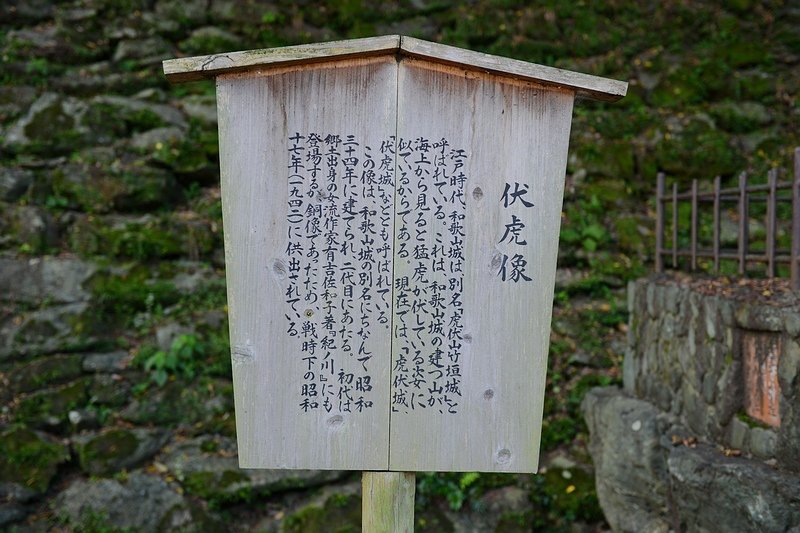 伏虎像
江戸時代、和歌山城は、別名「虎伏山竹垣城」と
呼ばれている。これは、和歌山城の建つ山が、
海上から見ると猛虎が伏している姿に
似ているからである 現在では、「虎伏城」
「伏虎城」などとも呼ばれている。
この像は、和歌山城の別名にちなんで 昭和
三十四年に建てられ、二代目にあたる。 初代は
郷土出身の女流作家有吉佐和子著『紀ノ川』にも
登場するが、銅像であったため、戦時下の昭和
十七年(一九四二)に供出されている。